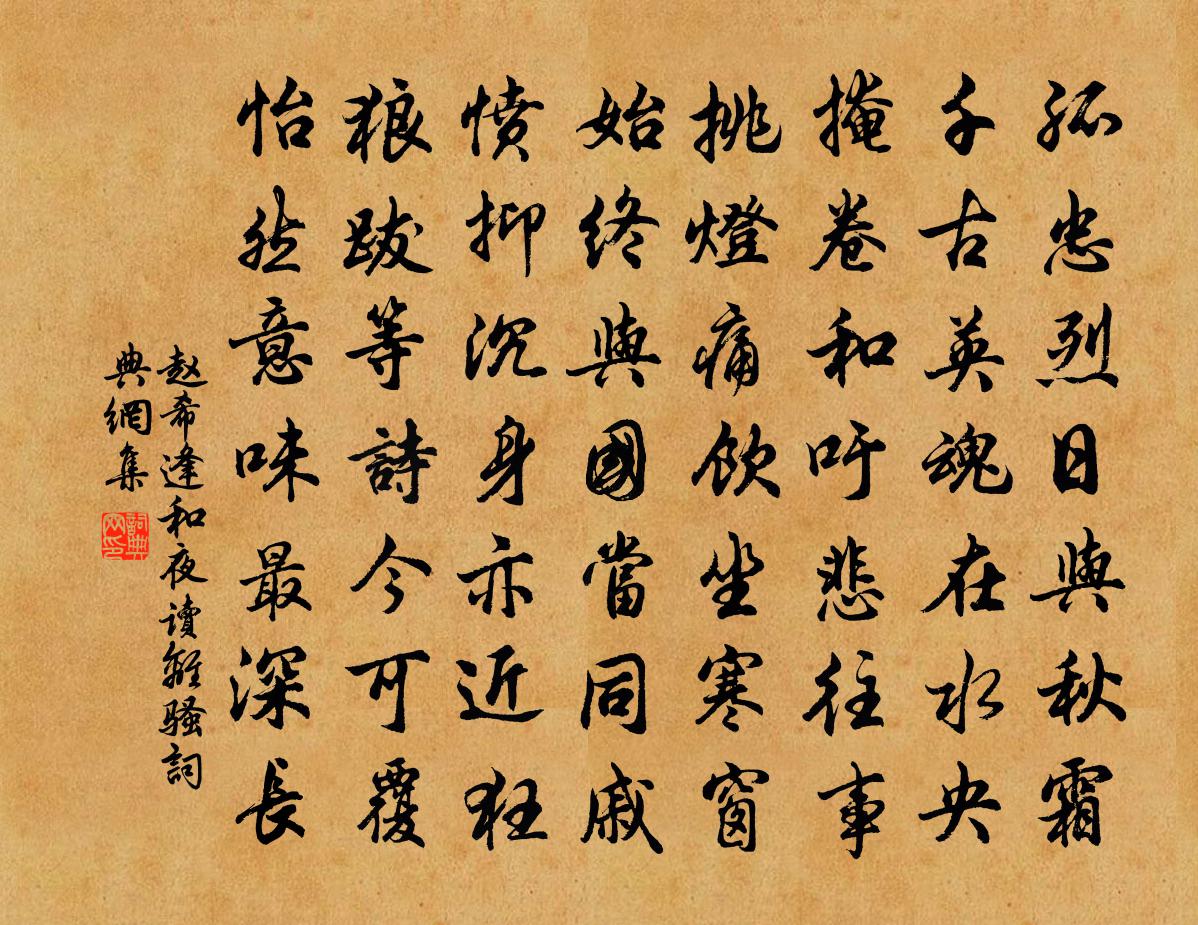 孤忠烈日與秋霜
千古英魂在水央
掩卷和吁悲往事
挑燈痛飲坐寒窗
始終與國當同戚
憤抑沉身亦近狂
狼跋等詩今可覆
怡然意味最深長
赵希逢和夜讀離騷詞
典網集
詞典
网印